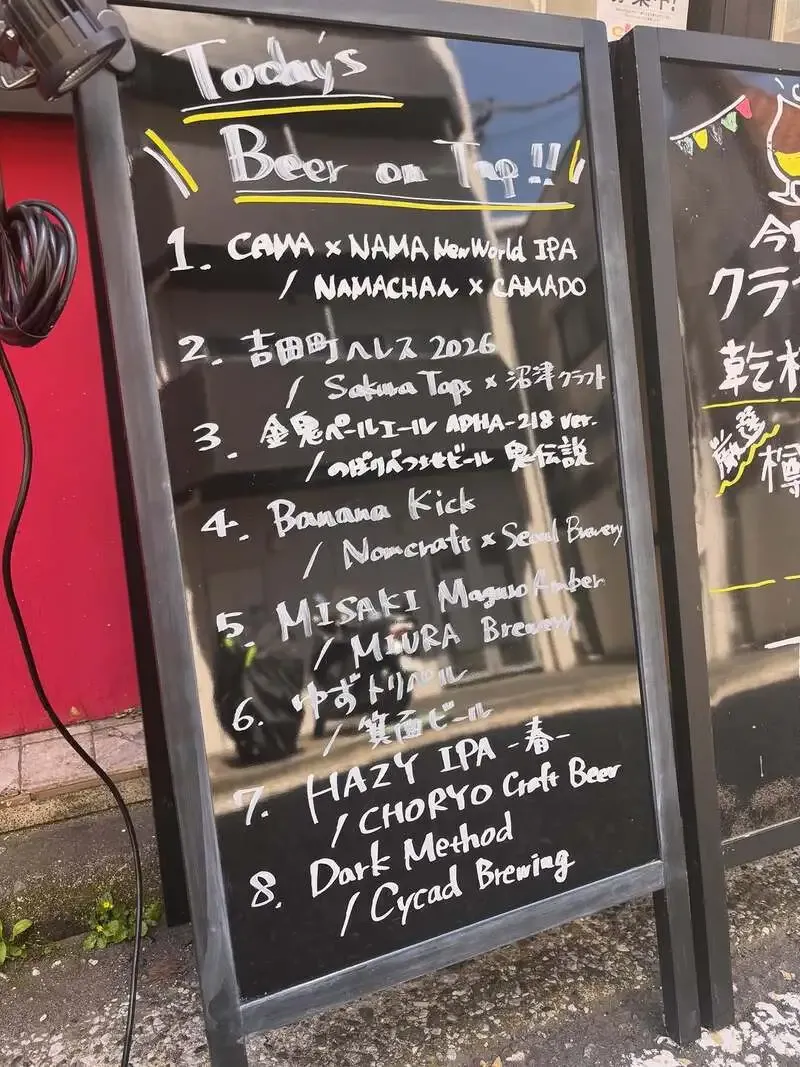 Today's
Beer on Tap!!
1. CAMA x NAMA New World IPA
/ NAMACHAん x CAMADO
2. 吉田町ヘレス 2026
/ Sakura Taps x 沼津クラフト
3. 金鬼ペールエール APHA-218 ver.
/ のぼりべつ地ビール 鬼伝説
4. Banana Kick
/ Nomcraft x Seoul Brewery
5. MISAKI Maguro Amber
/ MIURA Brewery
6. ゆずトリペル
/ 箕面ビール
7. HAZY IPA -春-
/ CHORYO Craft Beer
8. Dark Method
/ Cycad Brewing
クラ
乾杯
厳選
樽